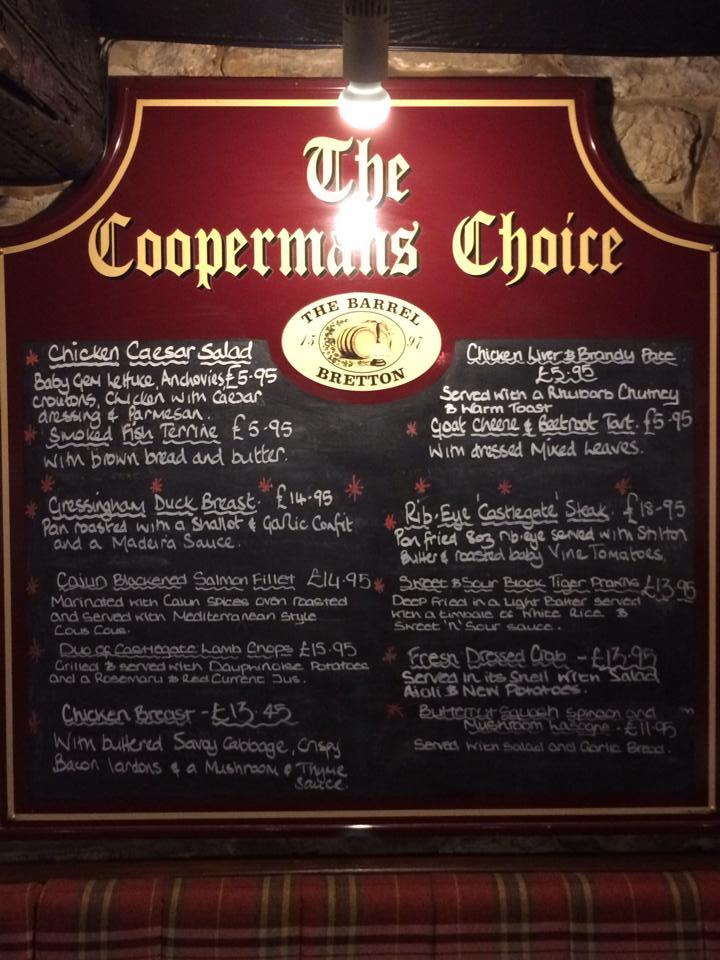 The
Coopermans Choice
THE BARREL
15 97
BRETTON
Chicken Caesar Salad
Baby Gem Lettuce, Anchovies £5.95
croutons, Chicken with Caesar
dressing & Parmesan.
Smoked Fish Terrine £5.95
with brown bread and butter.
Gressingham Duck Breast. £14.95
Pan roasted with a Shallot & Garlic Confit
and a Madeira Sauce.
Cajun Blackened Salmon Fillet £14.95
Marinated with Cajun spices oven roasted
and served with Mediterranean style
Cous Cous.
Duo of Castlegate Lamb Chops £15.95
Grilled & served with Dauphinoise Potatoes
and a Rosemary & Red Current Jus.
Chicken Breast - £13.45
With buttered Savoy Cabbage, Crispy
Bacon lardons & a Mushroom & Thyme
Sauce.
Chicken Liver & Brandy Pate
£5.95
Served with a Rhubarb Chutney
& Warm Toast
Goat Cheese & Beetroot Tart. £5.95
With dressed Mixed Leaves.
Rib-Eye 'Castlegate' Steak. £18.95
Pan fried 8oz rib-eye served with Stilton
Butter & roasted baby Vine Tomatoes,
Sweet & Sour Black Tiger Prawns £13.95
Deep Fried in a Light Batter served
with a timbale of White Rice &
Sweet 'n' Sour sauce.
Fresh Dressed Crab - £13.95
Served in its Shell with Salad
Aioli & New Potatoes.
Butternut Squash Spinach and
Mushroom Lasagne - £11.95
Served with Salad and Garlic Bread.